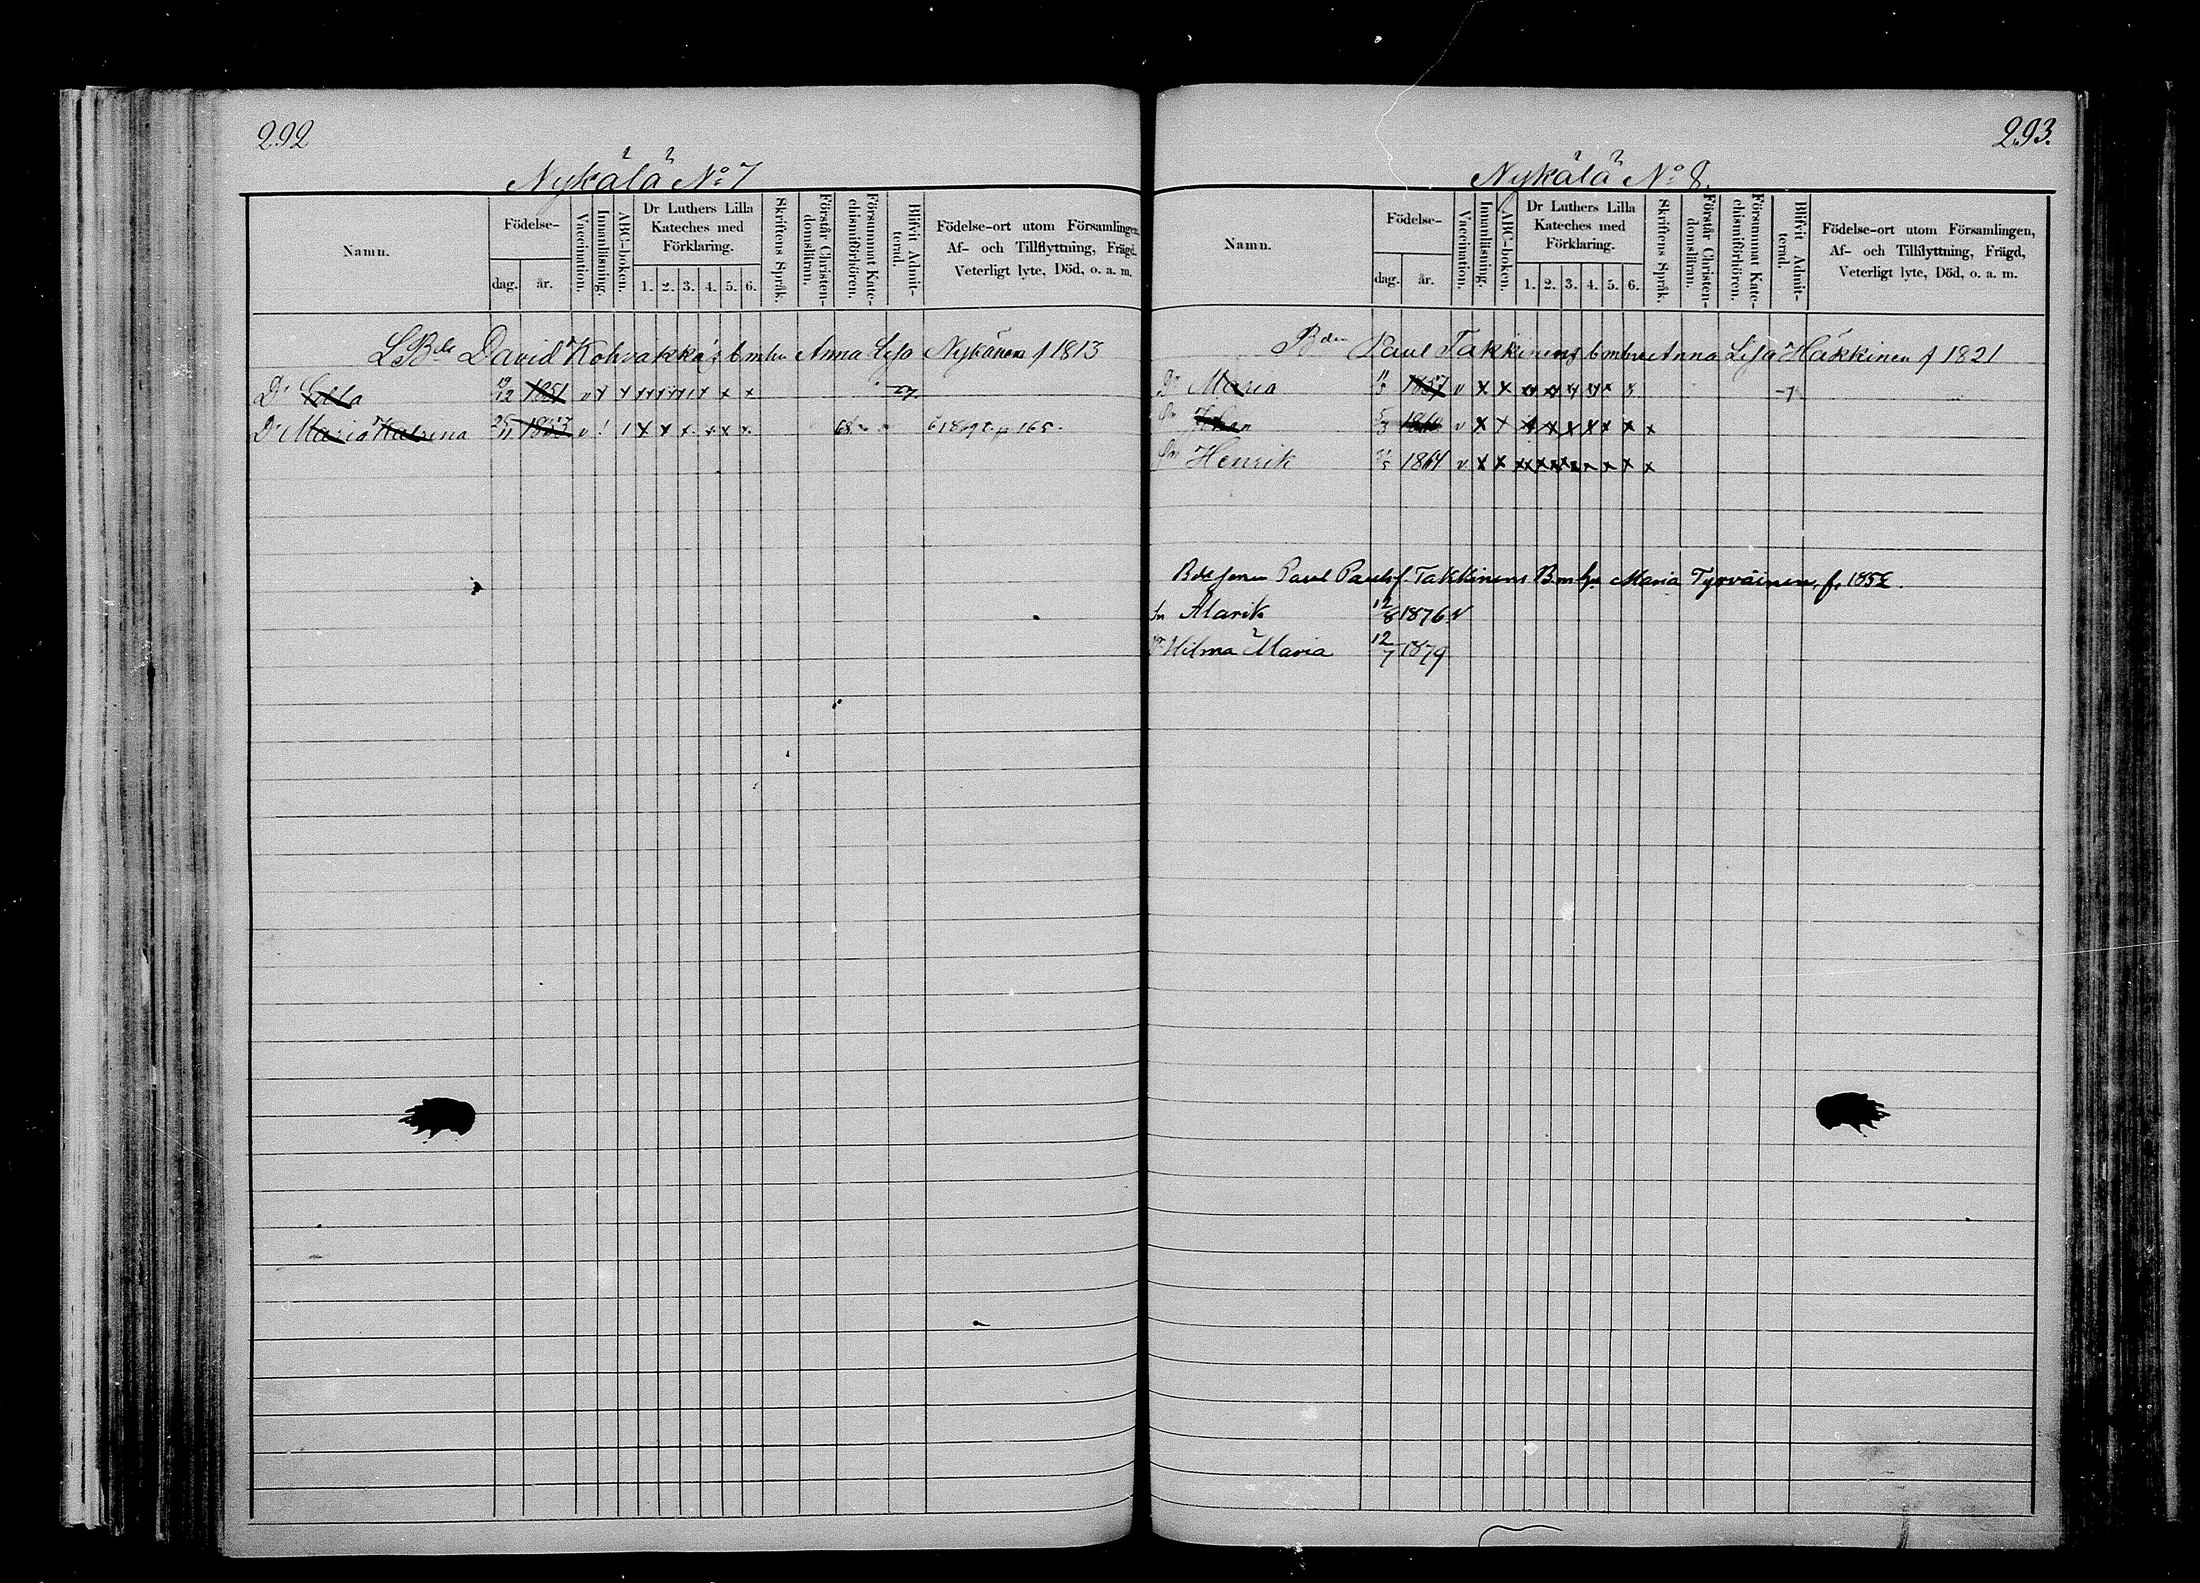 292
Nykälä No 7
Namn.
Födelse-
dag. år.
Vaccination.
Innanläsning.
ABC-boken.
Dr Luthers Lilla Kateches med Förklaring.
1. 2. 3. 4. 5. 6.
Skriftens Språk.
Förstår Christendomsläran.
Försummat Katechismiförhören.
Blifvit Admitterad.
Födelse-ort utom Församlingen,
Af- och Tillflyttning, Frägd,
Veterligt lyte, Död, o. a. m.
LBde David Kohvakka's Anna Lisa Nykänen f 1813
Dr 19/12 1851 v
Dr Maria Katrina 25/11 1853 v 68 165
293.
Nykälä No 8.
Namn.
Födelse-
dag. år.
Vaccination.
Innanläsning.
ABC-boken.
Dr Luthers Lilla Kateches med Förklaring.
1. 2. 3. 4. 5. 6.
Skriftens Språk.
Förstår Christendomsläran.
Försummat Katechismiförhören.
Blifvit Admitterad.
Födelse-ort utom Församlingen,
Af- och Tillflyttning, Frägd,
Veterligt lyte, Död, o. a. m.
Bden Paul Takkinens Anna Lisa Häkkinen f 1821
Dr Maria 1857 v x x
Sn Johan v x x
Sn Henrik 1864 v x x
Paul Paulsf. Takkinens Maria Tyrväinen, f. 1852.
Sn Alarik 12/8 1876 v
Dr Hilma Maria 12/7 1879